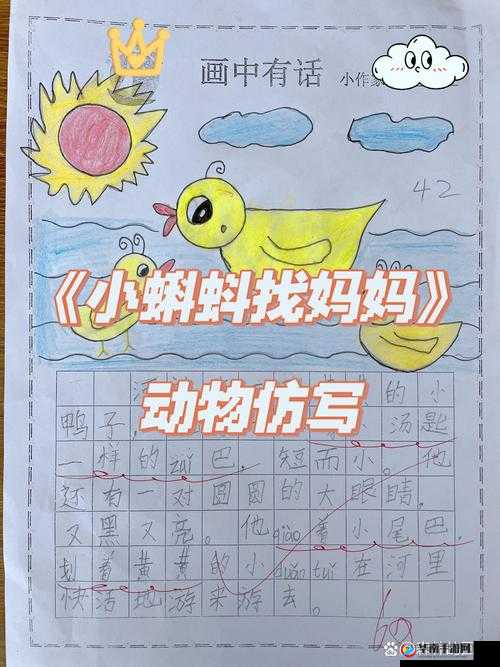 画中有话 小作家
42
《小蝌蚪找妈妈》
动物仿写
的小
鸭子，汤匙
一样的zuǐ巴。短而小。他
还有一对圆圆的大眼睛，
又黑又亮。他qiào着小尾巴，
划着黄黄的小duǎn tuǐ在河里
快活地游来游去。
60
华南手游网